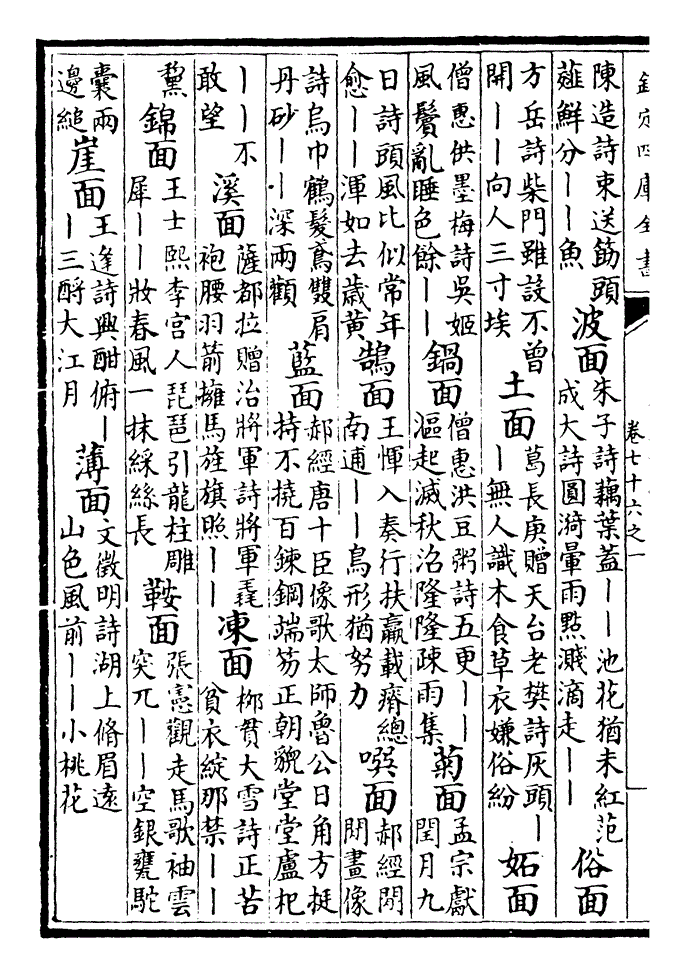 欽定四庫全書
卷七十六之一
陳造詩東送筯頭
薤鮮分――魚
波面
朱子詩藕葉蓋――池花猶未紅范
成大詩圓漪暈雨點濺滴走――
俗面
方岳詩柴門雖設不曾
開――向人三寸埃
土面
葛長庚贈天台老樊詩灰頭―
―無人識木食草衣嫌俗紛
妬面
僧惠供墨梅詩吳姬
風鬢亂睡色餘――
鍋面
僧惠洪豆粥詩五更――
漚起滅秋沼隆隆疎雨集
菊面
孟宗獻
閏月九
日詩頭風比似常年
愈――渾如去歲黄
鵠面
王惲入奏行扶羸載瘠總
南逋――鳥形猶努力
郝經
畫像
詩烏巾鶴髮鳶雙肩
丹砂――深兩顴
藍面
郝經唐十臣像歌太師魯公日角方挺
持不撓百鍊鋼端笏正朝貌堂堂盧杞
――不
敢望
溪面
薩都拉贈治將軍詩將軍毳
袍腰羽箭擁馬旌旗照――
凍面
柳貫大雪詩正苦
貧衣綻那禁――
黧
錦面
王士熙李宫人琵琶引龍柱雕
犀――妝春風一抹綵絲長
鞍面
張憲觀走馬歌袖雲
突兀――空銀甕駝
囊兩
邊縋
崖面
王逢詩興酣俯―
―三酹大江月
薄面
文徵明詩湖上脩眉遠
山色風前――小桃花